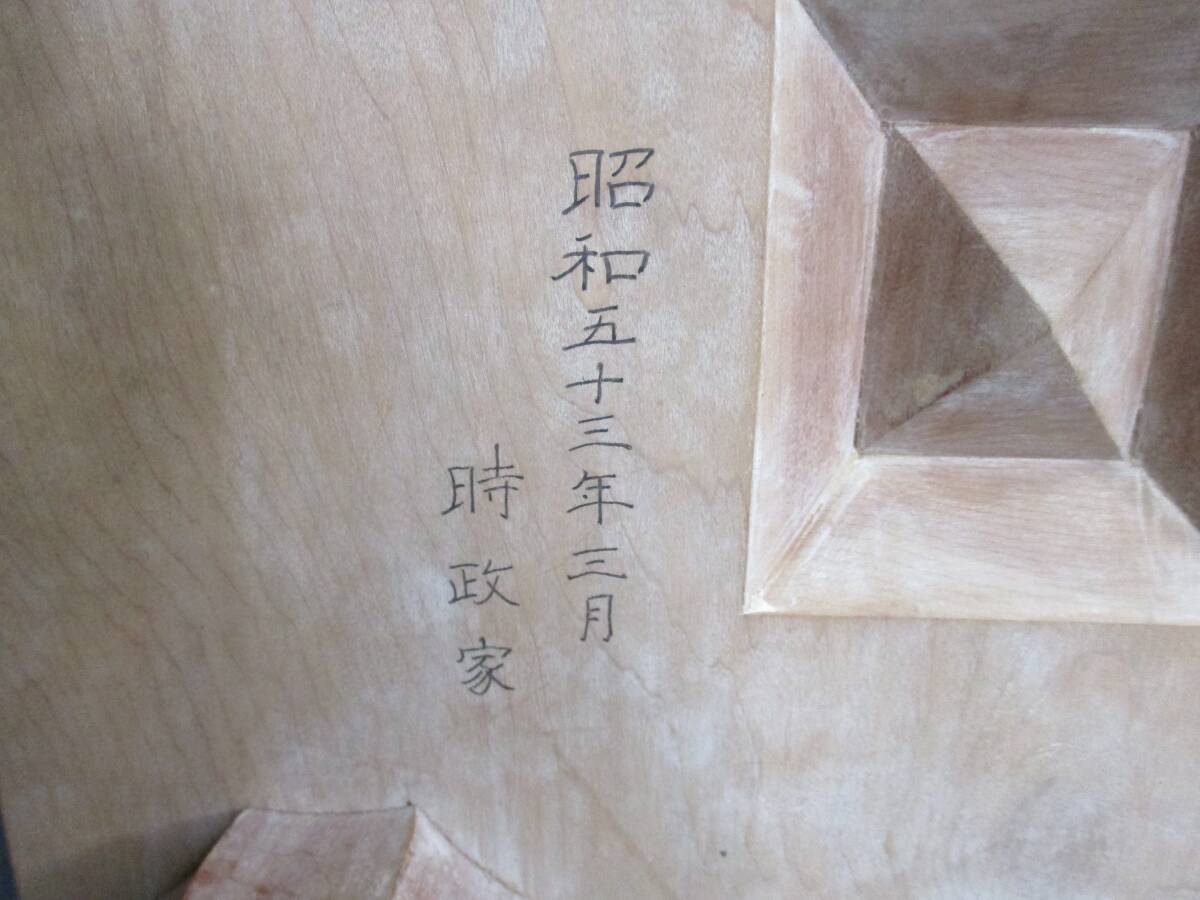 昭和五十三年三月
時政家